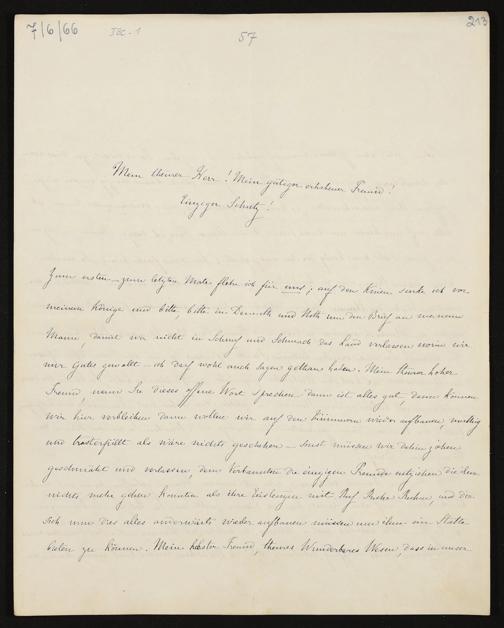 7/6/66
IEC-1
57
213
Mein theurer Herr! Mein gütiger erhabener Freund!
Einziger Schutz!
Zum ersten – zum letzten Male flehe ich für uns; auf den Knieen sinke ich vor
meinem Könige und bitte, bitte in Demuth und Noth um den Brief an meinen
Mann, damit wir nicht in Schimpf und Schmach das Land verlassen worin wir
nur Gutes gewollt – ich darf wohl auch sagen gethan haben. Mein theurer hoher
Freund, wenn Sie dieses offene Wort sprechen dann ist alles gut, dann können
wir hier verbleiben dann wollen wir auf den Trümmern wieder aufbauen, muthig
und trosterfüllt als wäre nichts geschehen – sonst müssen wir dahin ziehen
geschmäht und verlassen, dem Verbannten die einzigen Freunde entziehen die ihm
nichts mehr geben konnten als ihre Existenzen mit Ruf Ruhe Ruhm, und die
sich nun dies alles anderwärts wieder aufbauen müssten um ihm eine Stätte
bieten zu können. Mein hehrster Freund, theures Wunderbares Wesen, dass in unser